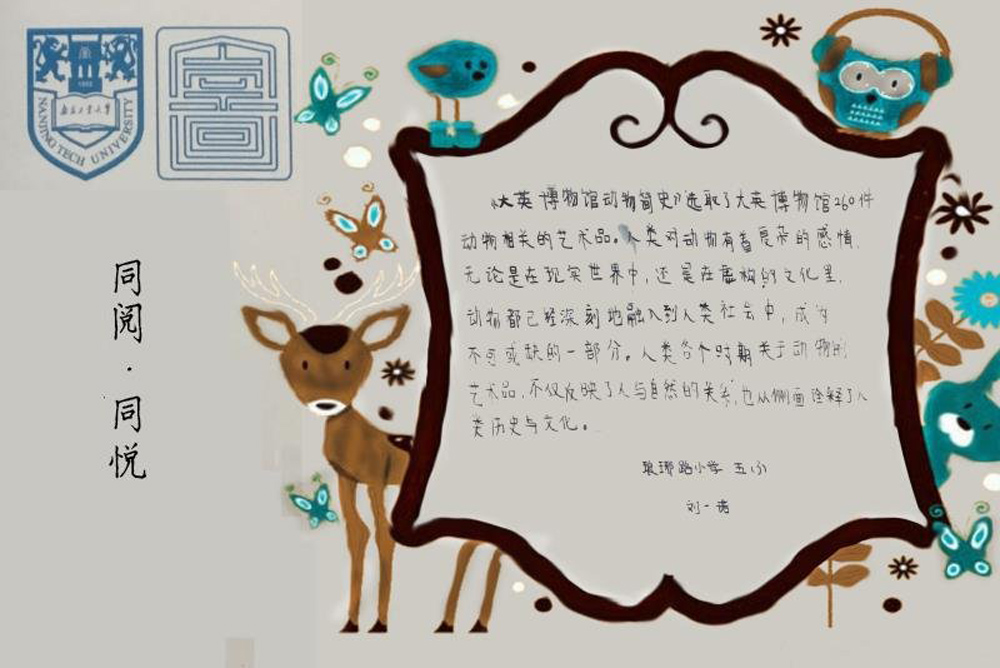 1902
南京工业大学
NANJING TECH UNIVERSITY
同阅·同悦
《大英博物馆动物简史》选取了大英博物馆260件
动物相关的艺术品。人类对动物有着复杂的感情,
无论是在现实世界中,还是在虚构的文化里,
动物都已经深刻地融入到人类社会中,成为
不可或缺的一部分。人类各个时期关于动物的
艺术品,不仅反映了人与自然的关系,也从侧面诠释了人
类历史与文化。
琅琊路小学 五(3)
刘一诺